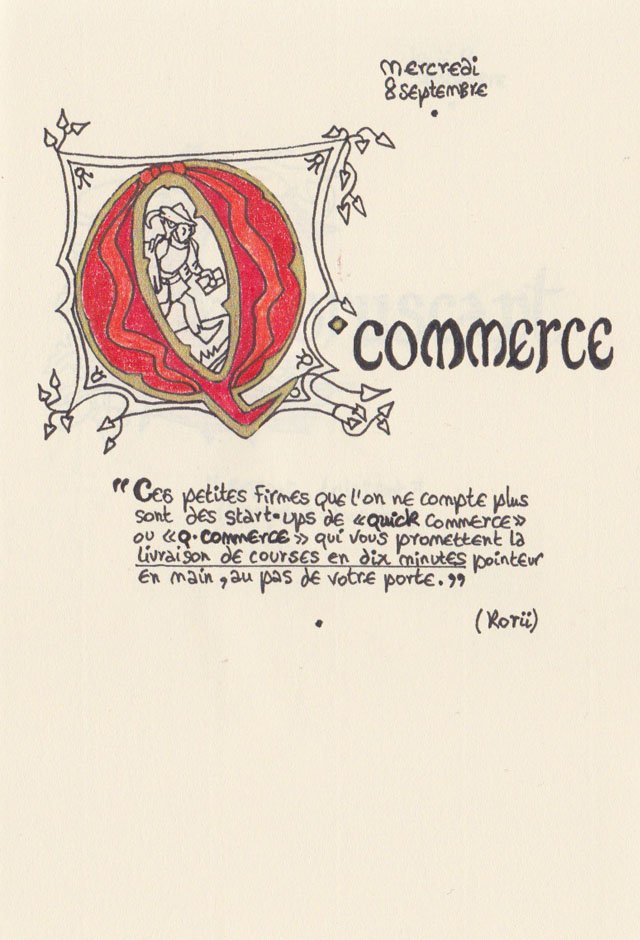 Mercredi
8 septembre
Q·commerce
"Ces petites firmes que l'on ne compte plus
sont des start-ups de «quick commerce»
ou «Q·commerce» qui vous promettent la
livraison de courses en dix minutes pointeur
en main, au pas de votre porte."
(Rorii)